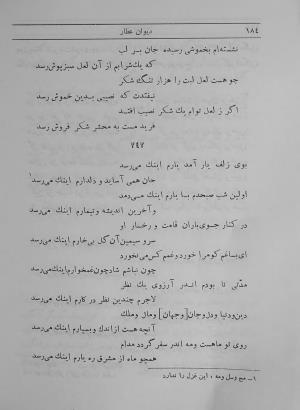 ۱۸٤ دیوان عطار
نشسته‌ام بخموشی رسیده جان بر لب
که یك‌شرابم از آن لعل سبزپوش‌رسد
چو هست لعل لبت را هزار تنگ شکر
نیفتدت که نصیبی بدین خموش رسد
اگر ز لعل توام یك شکر نصیب افتد
فرید مست به محشر شکر فروش رسد
۷٤۷
بوی زلف یار آمد یارم اینك می‌رسد
جان همی آساید و دلدارم اینك می‌رسد
اولین شب صبحدم با یارم اینك می‌رسد
و آخرین اندیشه و تیمارم اینك می‌رسد
در کنار جوی‌باران قامت و رخسار او
سرو سیمین‌آن گل بی‌خارم اینك می‌رسد
ای‌بساغم‌کومرا خوردوغمم کس‌می‌نخورد
چون نباشم شادچون‌غمخوارم‌اینك‌می‌رسد
مدتی تا بودم اندر آرزوی یك نظر
لاجرم چندین نظر در کارم اینك می‌رسد
دین‌ودنیا ودل‌وجان[وجهان] ومال وملك
آنچه هست از اندك وبسیارم اینك می‌رسد
روی تو ماهست ومه اندر سفر گردد مدام
همچو ماه از مشرق ره یارم اینك می‌رسد
۱- مج وسل ومه ، این غزل را ندارد